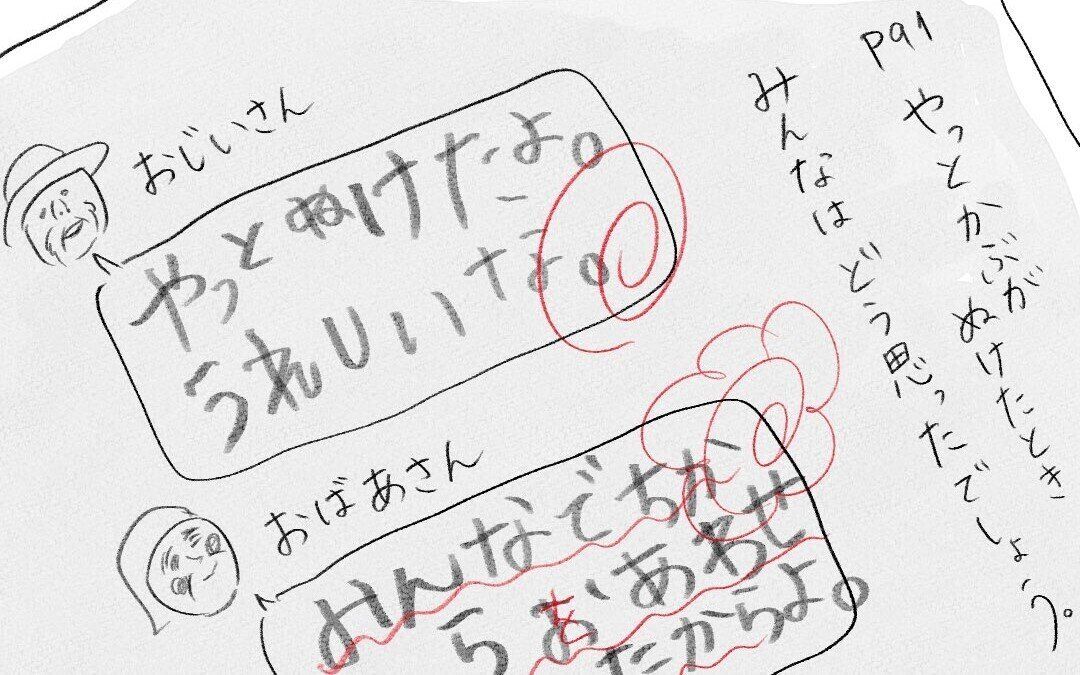 P91 やっとかぶがぬけたとき
みんなはどう思ったでしょう。
おじいさん
やっとぬけたよ。
うれしいなあ。
おばあさん
みんなでちか
らをあわせ
たからよ。